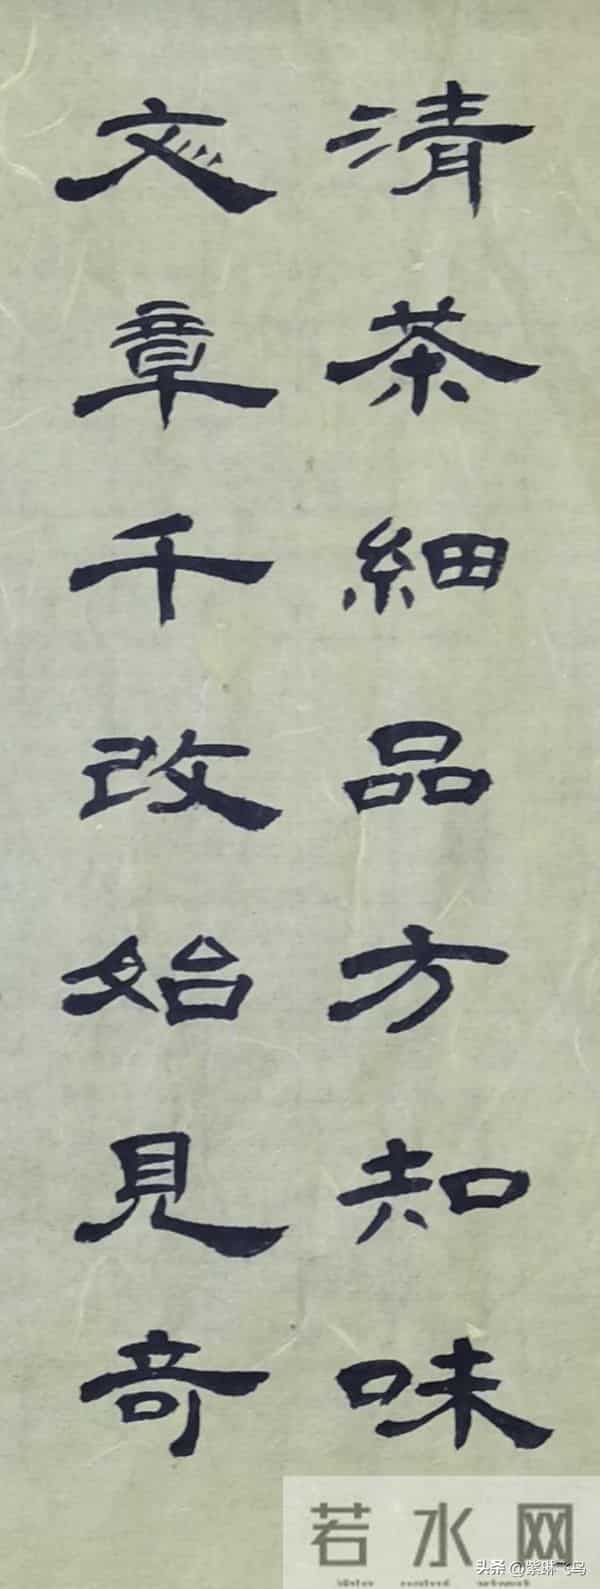 清茶細品方知味
文章千改始見奇
若水网
头条@紫琳飞鸟